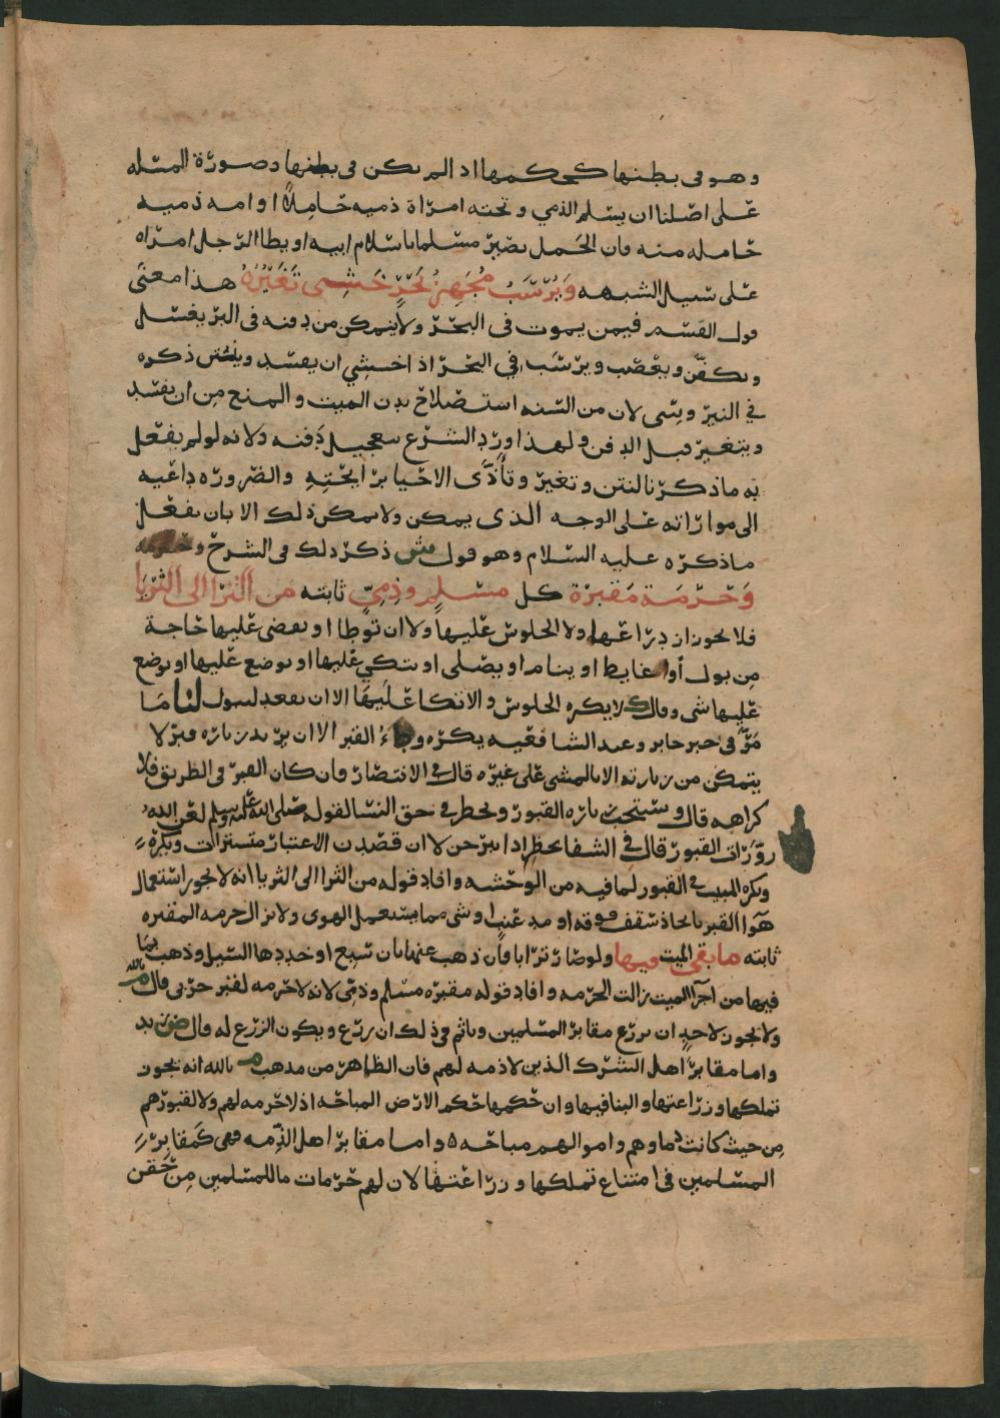 وهو في بطنها كحكمها اذ الم يكن في بطنها وصورة المسله
على اصلنا ان يسلم الذمي وتحته امراة ذميه حاملا او امه ذميه
حامله منه فان الحمل يصير مسلما باسلام ابيه او يطا الرجل امراه
على سبيل الشبهه ويرسب مجهز بحر خشي تغيره هذا معنى
قول القسم فيمن يموت في البحر ولا يتمكن من دفنه في البر يغسل
ويكفن ويعصب ويرسب في البحر اذ اخشي ان يفسد وينتن ذكره
في النير وسى لان من السنه استصلاح بدن الميت والمنع من ان يفسد
ويتغير قبل الدفن ولهذا ورد الشرع بتعجيل دفنه ولانه لو لم يفعل
به ما ذكرنا لنتن وتغير وتأذى الاحيا برايحته والضروره داعيه
الى مواراته على الوجه الذي يمكن ولا يمكن ذلك الا بان يفعل
ما ذكره عليه السلام وهو قول ش ذكر ذلك في الشرح
وحرمة مقبرة كل مسلم وذمي ثابته من الثرا الى الثريا
فلا يجوز ازدراعها ولا الجلوس عليها ولا ان توطا او يقضى عليها حاجة
من بول أو غايط او ينام او يصلى او يتكي عليها او يوضع عليها او يوضع
عليها شي وقال ك لا يكره الجلوس والاتكا عليها الا ان يقعد لبول لنا ما
مر في خبر جابر وعند الشافعيه يكره وطاء القبر الا ان يريد زياره قبر لا
يتمكن من زيارته الا بالمشي على غيره قال في الانتصار فان كان القبر في الطريق فلا
كراهه قال ويستحب زياره القبور ويحظر في حق النسا لقوله صلى الله عليه وسلم لعن الله
زوّارات القبور قال في الشفا يحظر اذا تبرجن لا ان قصدن الاعتبار مستترات ويكره
ويكره المبيت في القبور لما فيه من الوحشه وافاد قوله من الثرا الى الثريا انه لا يجوز استعمال
هوا القبر باتخاذ سقف فوقه او مد عنب او شي مما يستعمل الهوى ولا تزال حرمه المقبره
ثابته ما بقى الميت فيها ولو صار ترابا فان ذهب عنها بان سبع او خددها السيل وذهب بما
فيها من اجزا الميت زالت الحرمه وافاد قوله مقبره مسلم وذمي لانه لا حرمه لقبر حربي قال م بالله
ولا يجوز لاحد ان يزرع مقابر المسلمين وياثم في ذلك ان زرع ويكون الزرع له قال ض زيد
واما مقابر اهل الشرك الذين لا ذمه لهم فان الظاهر من مذهب م بالله انه يجوز
تملكها وزراعتها والبنا فيها وان حكمها حكم الارض المباحه اذ لا حرمه لهم ولا لقبورهم
من حيث كانت دماوهم واموالهم مباحه ه واما مقابر اهل الذمه فهي كمقابر
المسلمين في امتناع تملكها وزراعتها لان لهم حرمات ما للمسلمين من حقن